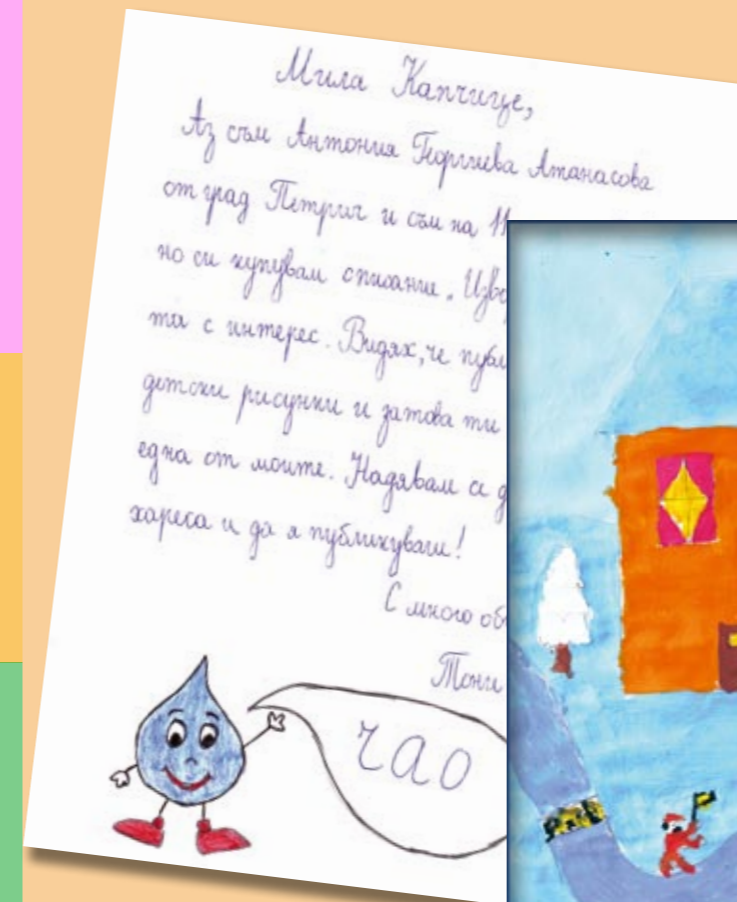 Мила Капчице,
Аз съм Антония Георгиева Атанасова
от град Петрич и съм на 11
но си купувам списание. Изв
та с интерес. Видях, че публ
детски рисунки и затова ти
една от моите. Надявам се д
хареса и да я публикуваш!
С много об
Тони
чао